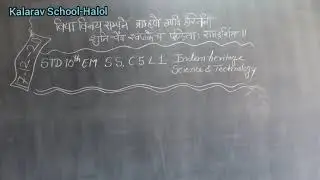 Kalarav School-Halol
विद्या विनय सम्पन्ने ब्राह्मणे गवि हस्तिनि
शुनि चैव श्वपाके च पंडिताः समदर्शिनः॥
STD 10th EM S.S. C 5 L 1 Indian heritage
Science & Technology